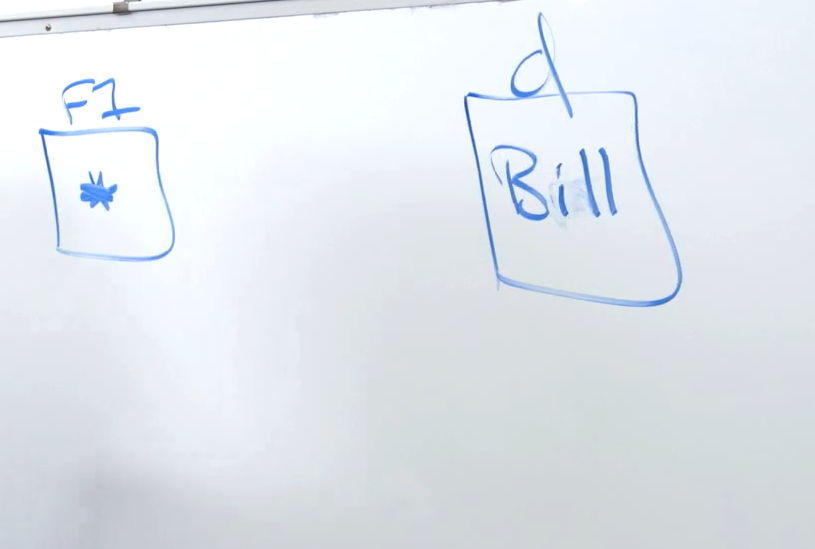 F1
d
*
Bill